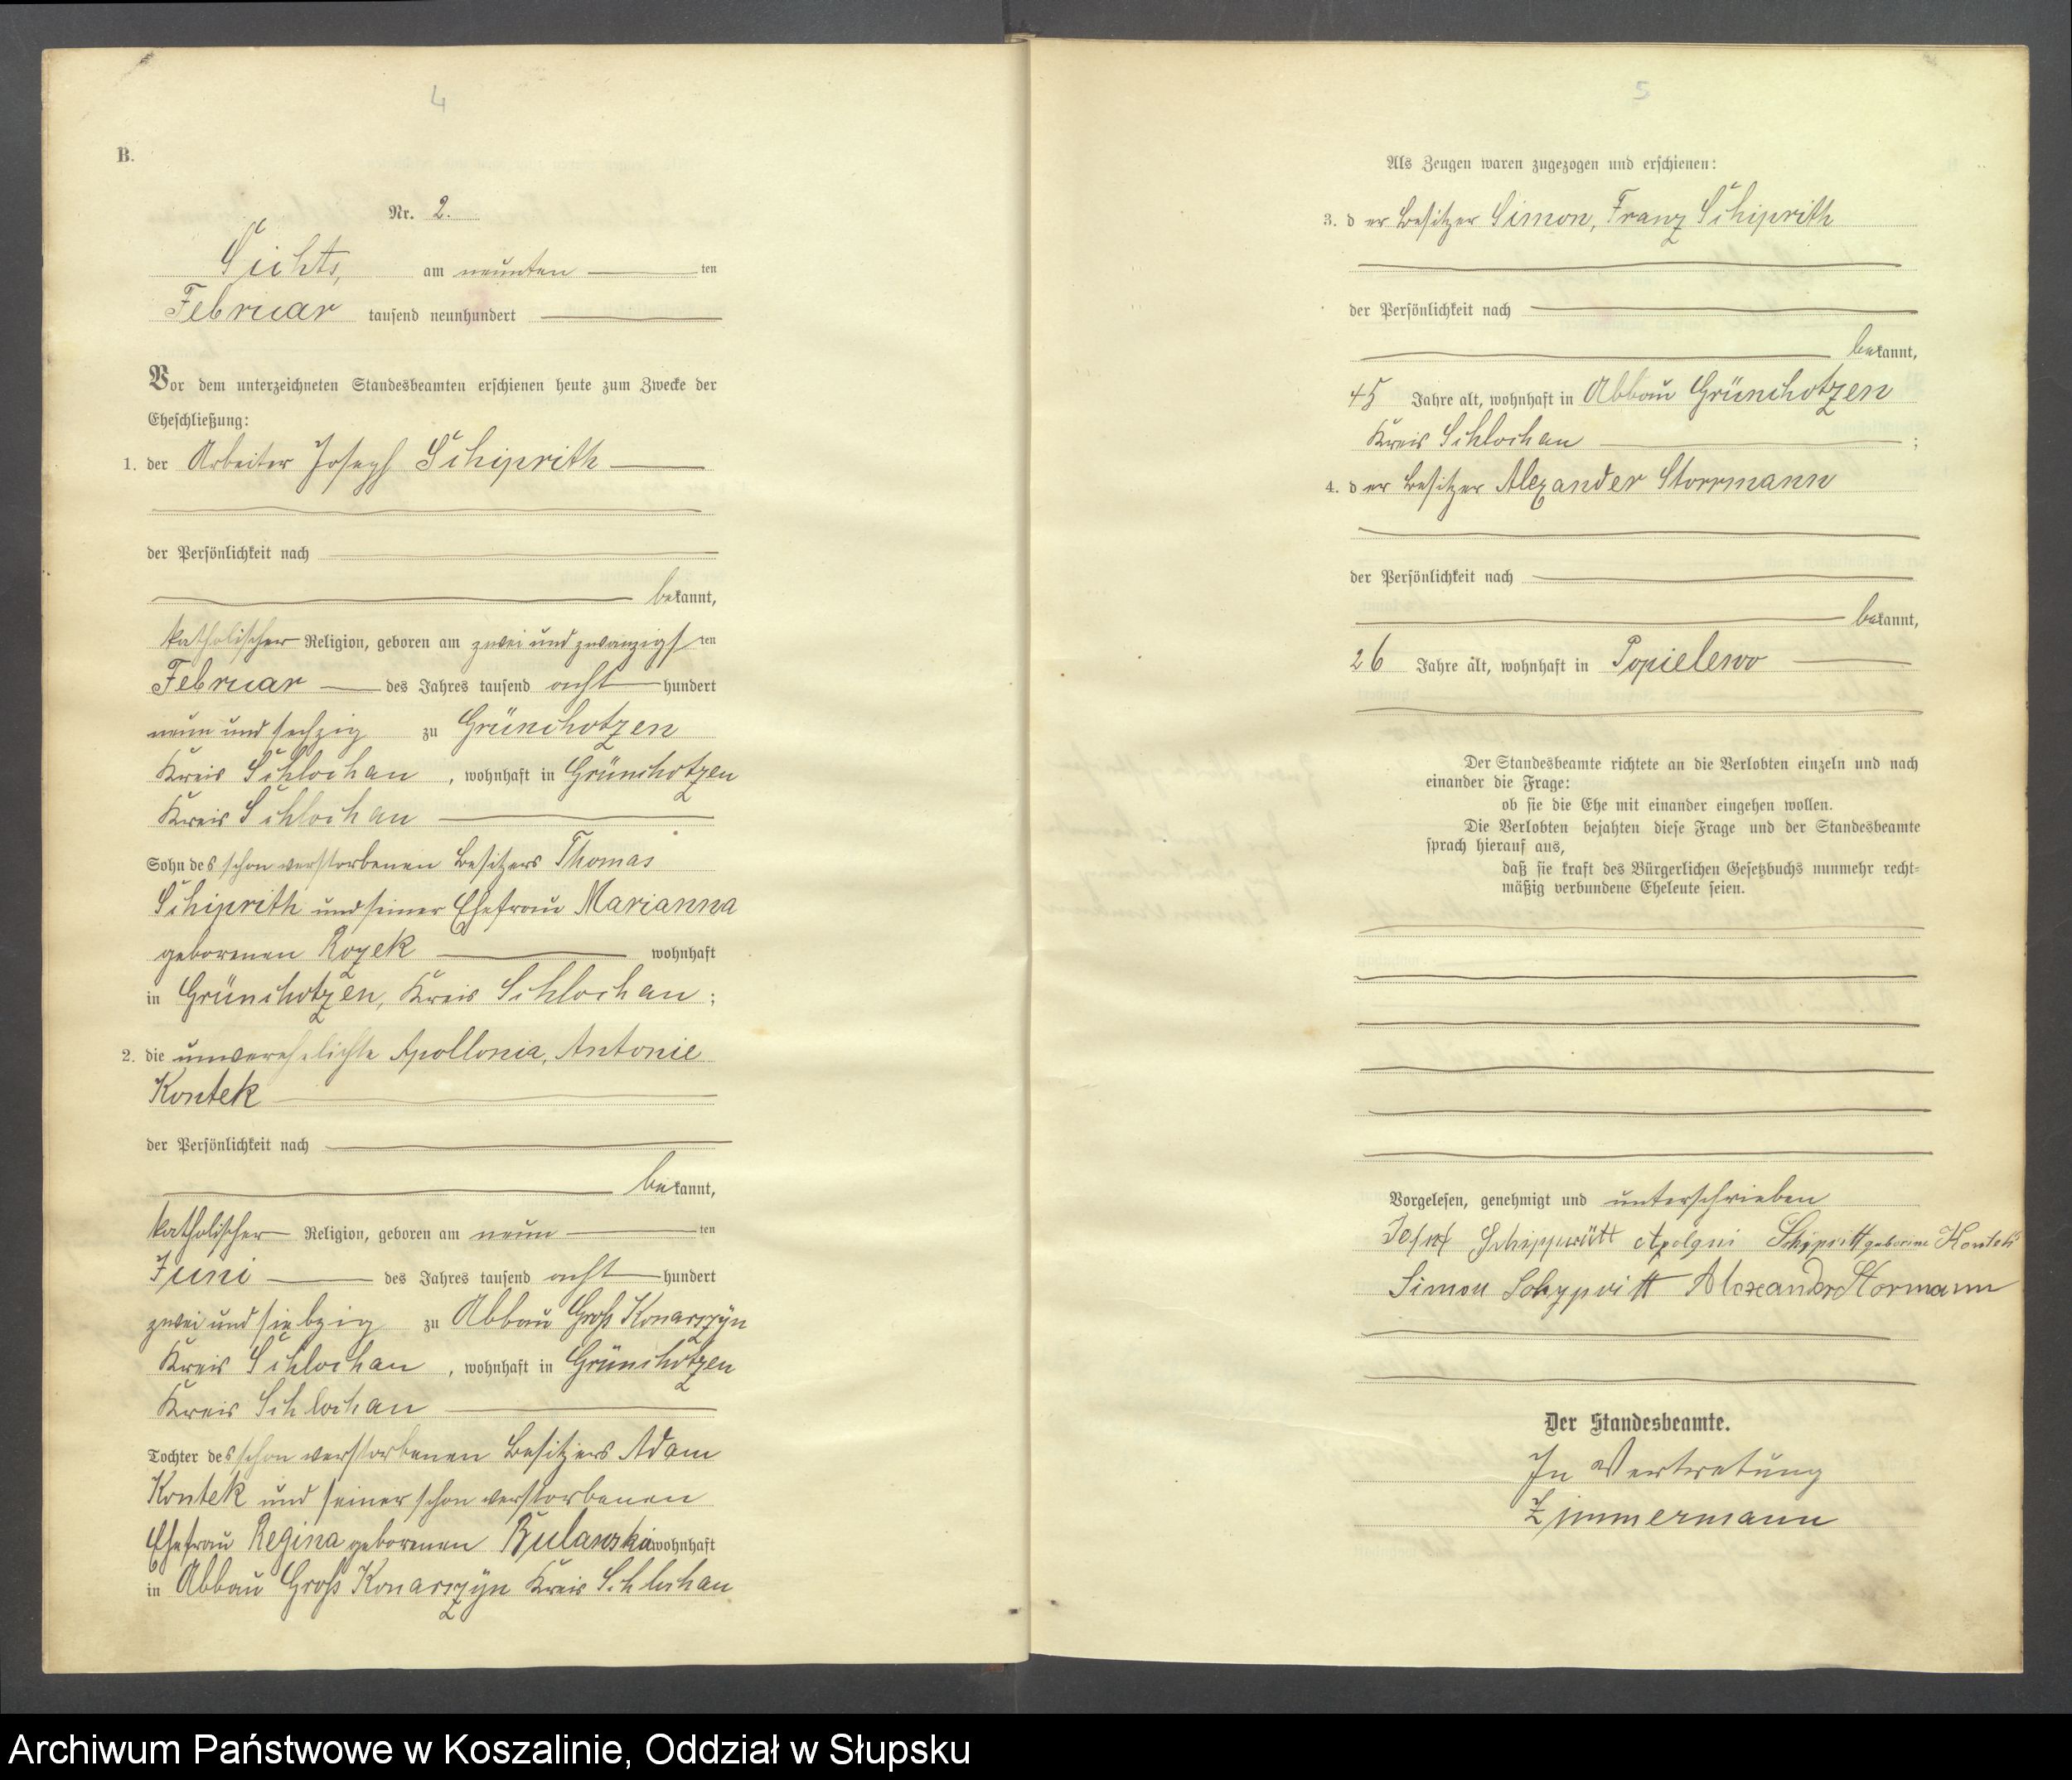 4
B.
Nr. 2.
Sichts, am neunten ten
Februar tausend neunhundert
Vor dem unterzeichneten Standesbeamten erschienen heute zum Zwecke der
Eheschließung:
1. der Arbeiter Joseph Schiprith
der Persönlichkeit nach
bekannt,
katholischer Religion, geboren am zwei und zwanzigsten
Februar des Jahres tausend acht hundert
neun und sechzig zu Grünchotzen
Kreis Schlochau, wohnhaft in Grünchotzen
Kreis Schlochau
Sohn des schon verstorbenen Besitzers Thomas
Schiprith und seiner Ehefrau Marianna
geborenen Rozek wohnhaft
in Grünchotzen, Kreis Schlochau;
2. die unverehelichte Apollonia, Antonie
Kontek
der Persönlichkeit nach
bekannt,
katholischer Religion, geboren am neun ten
Juni des Jahres tausend acht hundert
zwei und siebzig zu Abbau Groß Konarszyn
Kreis Schlochau, wohnhaft in Grünchotzen
Kreis Schlochau
Tochter des schon verstorbenen Besitzers Adam
Kontek und seiner schon verstorbenen
Ehefrau Regina geborenen Bulawska wohnhaft
in Abbau Groß Konarszyn Kreis Schlochau
5
Als Zeugen waren zugezogen und erschienen:
3. der Besitzer Simon, Franz Schiprith
der Persönlichkeit nach
bekannt,
45 Jahre alt, wohnhaft in Abbau Grünchotzen
Kreis Schlochau;
4. der Besitzer Alexander Storrmann
der Persönlichkeit nach
bekannt,
26 Jahre alt, wohnhaft in Popielewo
Der Standesbeamte richtete an die Verlobten einzeln und nach
einander die Frage:
ob sie die Ehe mit einander eingehen wollen.
Die Verlobten bejahten diese Frage und der Standesbeamte
sprach hierauf aus,
daß sie kraft des Bürgerlichen Gesetzbuchs nunmehr recht-
mäßig verbundene Eheleute seien.
Vorgelesen, genehmigt und unterschrieben
Schippritt Schipritt geborene Kontek
Simon Schyppritt Alexander Stormann
Der Standesbeamte.
In Vertretung
Zimmermann
Archiwum Państwowe w Koszalinie, Oddział w Słupsku